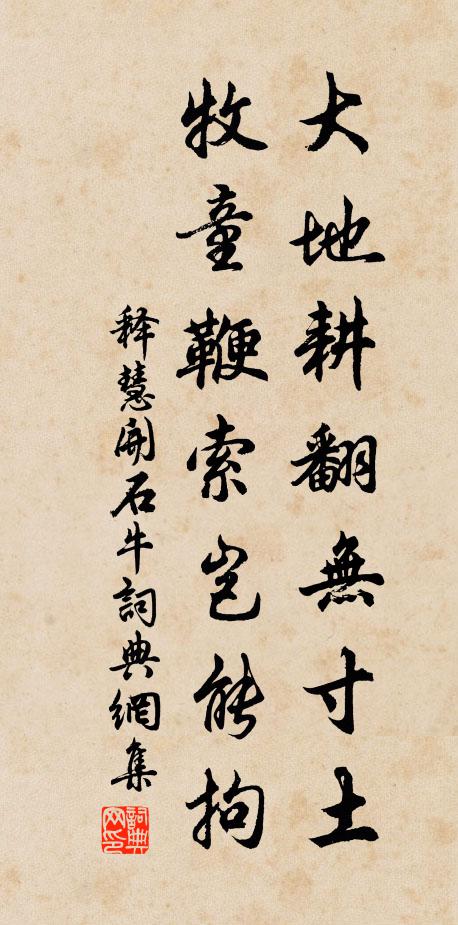 大地耕翻無寸土
牧童鞭索岂能拘
释慧開石牛詞典網集
詞典网印